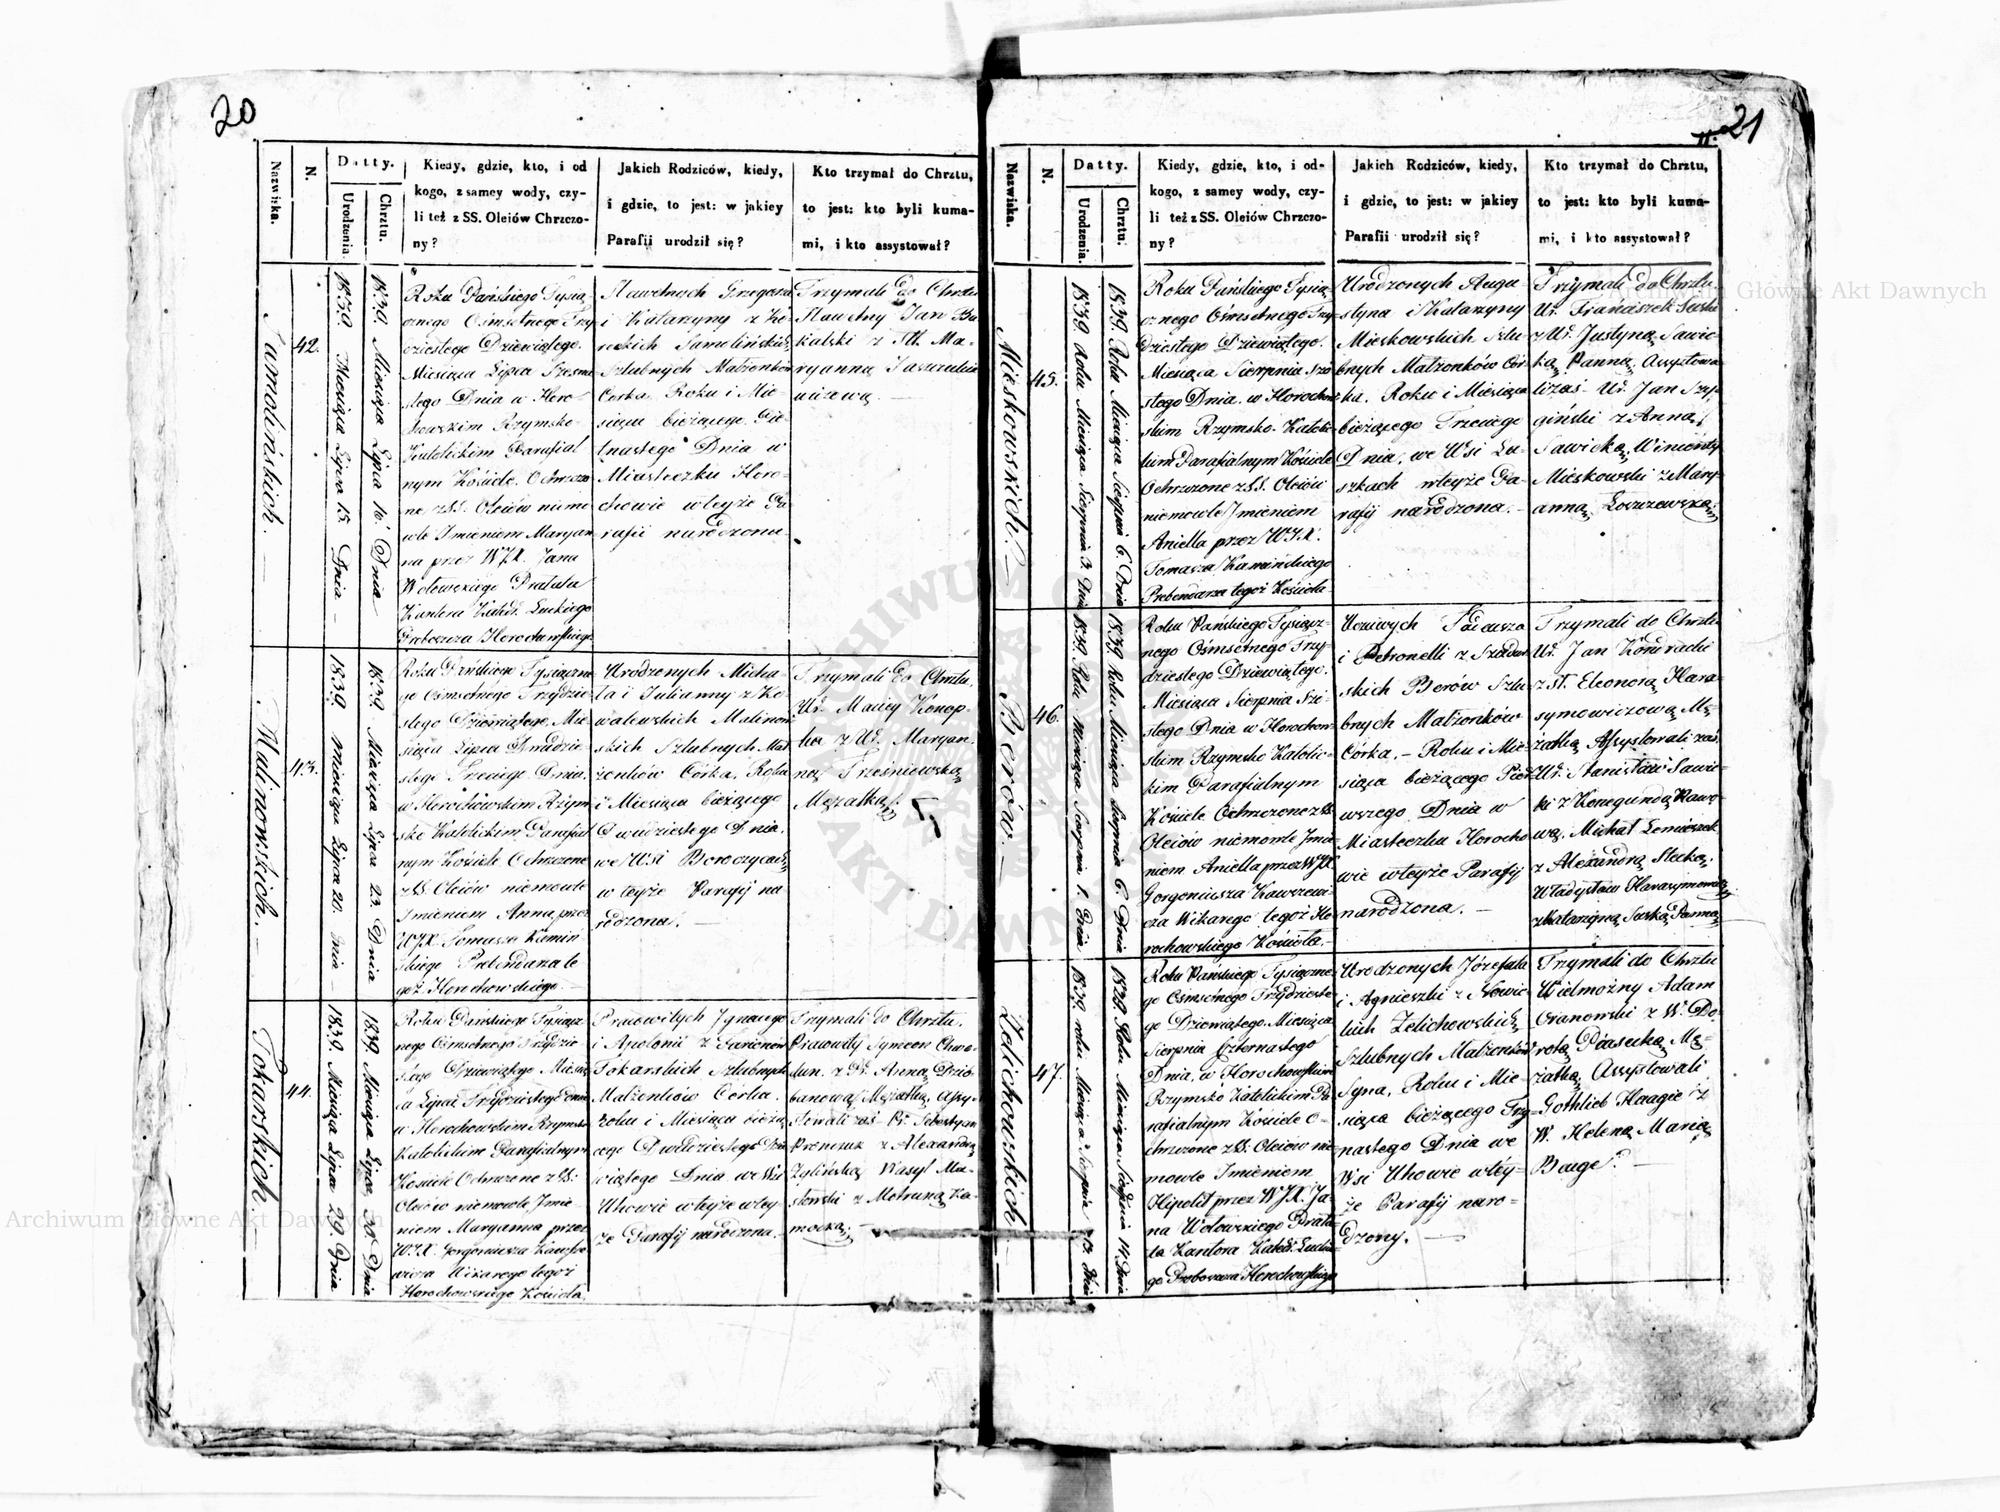 20
Nazwiska.
N.
Datty.
Urodzenia.
Chrztu.
Kiedy, gdzie, kto, i od
kogo, z samey wody, czy-
li też z SS. Oleiów Chrzczo-
ny?
Jakich Rodziców, kiedy,
i gdzie, to jest: w jakiey
Parafii urodził się?
Kto trzymał do Chrztu,
to jest: kto byli kuma-
mi, i kto assystował?
Samolińskich.
42.
1839 Miesiąca Lipca 15. Dnia
1839. Miesiąca Lipca 16. Dnia
Roku Pańskiego Tysią-
cznego Ośmsetnego Trzy
dziestego Dziewiątego.
Miesiąca Lipca Szesna
stego Dnia w Horo-
chowskim Rzymsko-
Katolickim Parafial
nym Kościele. Ochrzczo
ne z SS. Oleiów niemo
wle Imieniem Maryan
na przez WJX. Jana
Wołowskiego Prałata
Kantora Kated. Łuckiego
Proboszcza Horochowskiego
Sławetnych Grzegorza
i Katarzyny z
Samolińskich
Szlubnych Małżonków
Córka. Roku i Mie-
siąca bieżącego Pię-
tnastego Dnia w
Miasteczku Horo-
chowie w teyże Pa
rafii narodzona
Trzymali do Chrztu
Sławetny Jan
kalski z Ma-
ryanną
Malinowskich.
43.
1839. Miesiąca Lipca 20. Dnia
1839. Miesiąca Lipca 23. Dnia
Roku Pańskiego Tysiączne
go Ośmsetnego Trzydzie-
stego Dziewiątego Mie-
siąca Lipca Dwudzie-
stego Trzeciego Dnia
w Horochowskim Rzym
sko Katolickim Parafial
nym Kościele Ochrzczone
z SS. Oleiów niemowle
Imieniem Anna przez
WJX. Tomasza Kamiń-
skiego Prebendarza te
goż Horochowskiego
Urodzonych Micha
ła i Julianny z Ko-
walewskich Malinow
skich Szlubnych Mał
żonków Córka, Roku
i Miesiąca bieżącego
Dwudziestego Dnia.
we Wsi Boroczycach
w teyże Parafij na
rodzona.
Trzymali do Chrztu.
Ur. Maciey Konop-
ka z Ur. Maryan.
ną Trześniowską
Mężatką.
Tokarskich.
44.
1839. Miesiąca Lipca 29. Dnia
1839. Miesiąca Lipca 30. Dnia
Roku Pańskiego Tysiącz
nego Ośmsetnego Trzydzie
stego Dziewiątego Miesią
ca Lipca Trzydziestego Dnia
w Horochowskim Rzymsko
Katolickim Parafialnym
Kościele Ochrzczone z SS:
Oleiów niemowle Imie-
niem Maryanna przez
WJX. Gorgoniusza
wicza Wikarego tegoż
Horochowskiego Kościoła.
Pracowitych Ignacego
i Apolonii z
Tokarskich Szlubnych
Małżonków Córka.
Roku i Miesiąca bieżą
cego Dwudziestego Dzie
wiątego Dnia we Wsi
Uhowie w tey-
że Parafij narodzona.
Trzymali do Chrztu.
Pracowity Symeon
z Pr. Anną
Mężatką, Assy-
stowali zaś Pr. Sebastyan
z Alexandrą
Wasyl
z Motruną
21
Nazwiska.
N.
Datty.
Urodzenia.
Chrztu.
Kiedy, gdzie, kto, i od-
kogo, z samey wody, czy-
li też z SS. Oleiów Chrzczo-
ny?
Jakich Rodziców, kiedy,
i gdzie, to jest: w jakiey
Parafii urodził się?
Kto trzymał do Chrztu,
to jest: kto byli kuma-
mi, i kto assystował?
Mieskowskich.
45.
1839. Roku Miesiąca Sierpnia 3. Dnia
1839. Roku Miesiąca Sierpnia 6. Dnia
Roku Pańskiego Tysią
cznego Ośmsetnego Trzy
dziestego Dziewiątego.
Miesiąca Sierpnia Szó
stego Dnia. w Horochow
skim Rzymsko-Katolic
kim Parafialnym Kościele
Ochrzczone z SS. Oleiów
niemowle Imieniem
Aniella przez WJX.
Tomasza Kamińskiego
Prebendarza tegoż Kościoła
Urodzonych Augu
styna i Katarzyny
Mieskowskich Szlu
bnych Małżonków Cór
ka. Roku i Miesiąca
bieżącego Trzeciego
Dnia, we Wsi Łu-
szkach w teyże Pa-
rafij narodzona.
Trzymali do Chrztu
Ur. Franciszek
z Ur. Justyną Sawic-
ką Panną, Assystowa
li zaś Ur. Jan
z Anną
Sawicką, Wincenty
Mieskowski z Mary-
anną
Berów.
46.
1839. Roku Miesiąca Sierpnia 1. Dnia
1839. Roku Miesiąca Sierpnia 6. Dnia
Roku Pańskiego Tysiącz-
nego Ośmsetnego Trzy
dziestego Dziewiątego.
Miesiąca Sierpnia Szó-
stego Dnia w Horochow-
skim Rzymsko Katolic-
kim Parafialnym
Kościele Ochrzczone z SS.
Oleiów niemowle Imie
niem Aniella przez WJX
Gorgoniusza
cza Wikarego tegoż Ho
rochowskiego Kościoła.
Uczciwych Tadeusza
i Petronelli z
skich Berów Szlu-
bnych Małżonków
Córka. Roku i Mie
siąca bieżącego Pier
wszego Dnia w
Miasteczku Horocho
wie w teyże Parafij
narodzona.
Trzymali do Chrztu
Ur. Jan Kondracki
z Eleonorą Hara
symowiczową Mę
żatką Assystowali zaś
Ur. Stanisław Sawic-
ki z Konegundą
wą, Michał
z Alexandrą Stecką.
Władysław Harasymowicz
z Katarzyną Panną
Zelichowskich.
47.
1839. roku Miesiąca Sierpnia 13. Dnia
1839. Roku Miesiąca Sierpnia 14. Dnia
Roku Pańskiego Tysiączne
go Ośmsetnego Trzydzieste
go Dziewiątego. Miesiąca
Sierpnia Czternastego
Dnia, w Horochowskim
Rzymsko Katolickim Pa
rafialnym Kościele O-
chrzczone z SS: Oleiów nie
mowle Imieniem
Hipolit przez WJX. Ja-
na Wołowskiego Prała-
ta Kantora Kated: Łuckie
go Proboszcza Horochowskiego
Urodzonych Józefata
i Agnieszki z Nowic
kich Zelichowskich
Szlubnych Małżonków
Syna, Roku i Mie-
siąca bieżącego Trzy-
nastego Dnia we
Wsi Uhowie w téy-
że Parafij naro-
dzony.
Trzymali do Chrztu
Wielmożny Adam
Oranowski z W. Do
rotą Piasecką Mę-
żatką, Assystowali
Gotthlieb Haagie z
W. Heleną Marią
Bauge.
Archiwum Główne Akt Dawnych
Archiwum Główne Akt Dawnych